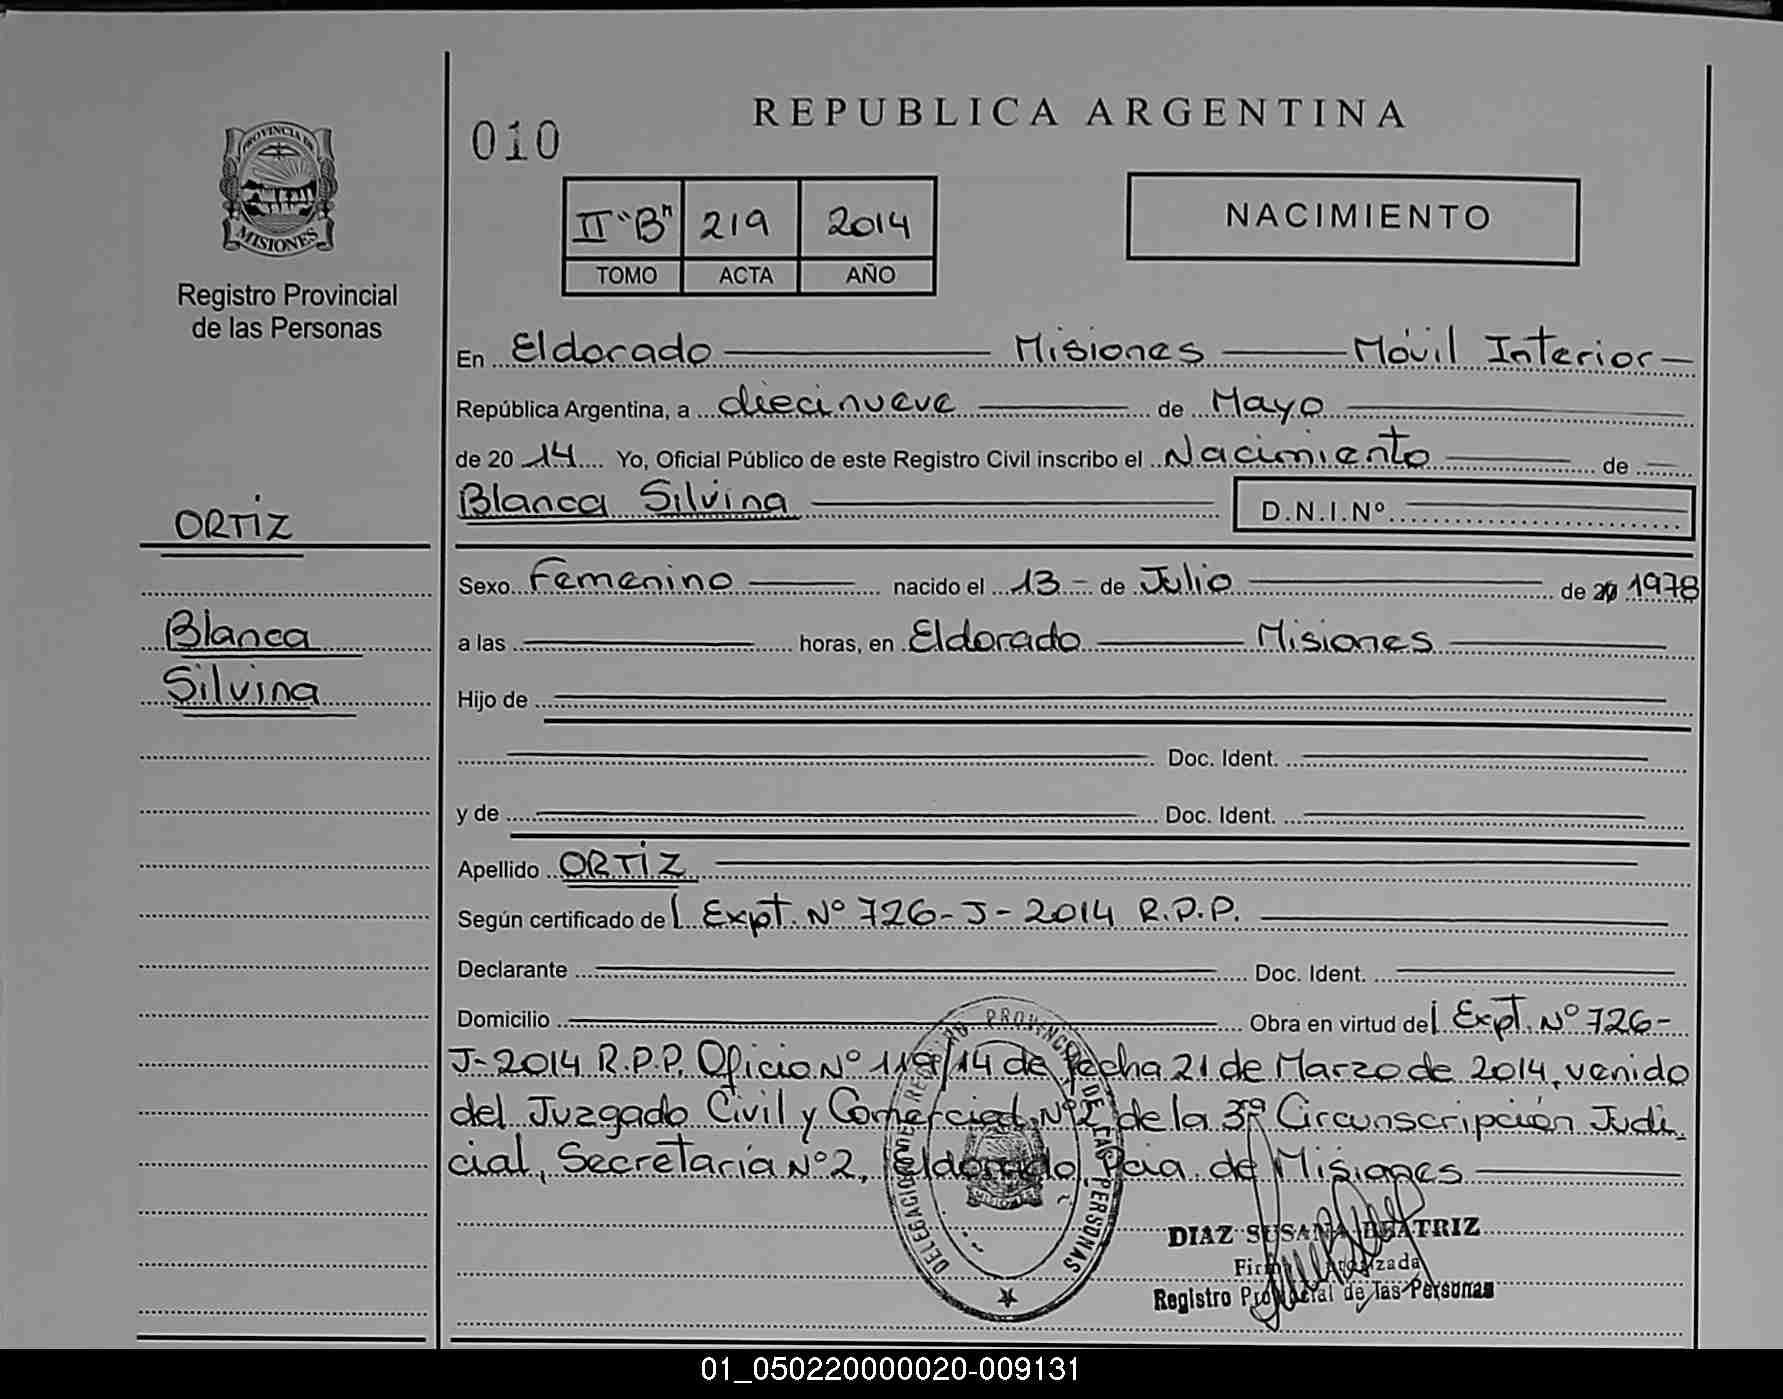 REPUBLICA ARGENTINA
010
PROVINCIA DE
MISIONES
Registro Provincial
de las Personas
II "B" 219 2014
TOMO ACTA AÑO
NACIMIENTO
En Eldorado Misiones Móvil Interior
República Argentina, a diecinueve de Mayo
de 20 14 Yo, Oficial Público de este Registro Civil inscribo el Nacimiento de
Blanca Silvina D.N.I.Nº
ORTIZ
Blanca
Silvina
Sexo Femenino nacido el 13 de Julio de 20 1978
a las horas, en Eldorado Misiones
Hijo de
Doc. Ident.
y de Doc. Ident.
Apellido ORTIZ
Según certificado de Expt. Nº 726-J-2014 R.P.P.
Declarante Doc. Ident.
Domicilio Obra en virtud del Expt. Nº 726-
J-2014 R.P.P. Oficio Nº /14 de fecha 21 de Marzo de 2014, venido
del Juzgado Civil y Comercial Nº2 de la 3ª Circunscripción Judi-
cial, Secretaría Nº2, Eldorado Pcia. de Misiones
DIAZ SUSANA BEATRIZ
Firma Autorizada
Registro Provincial de las Personas
01_050220000020-009131